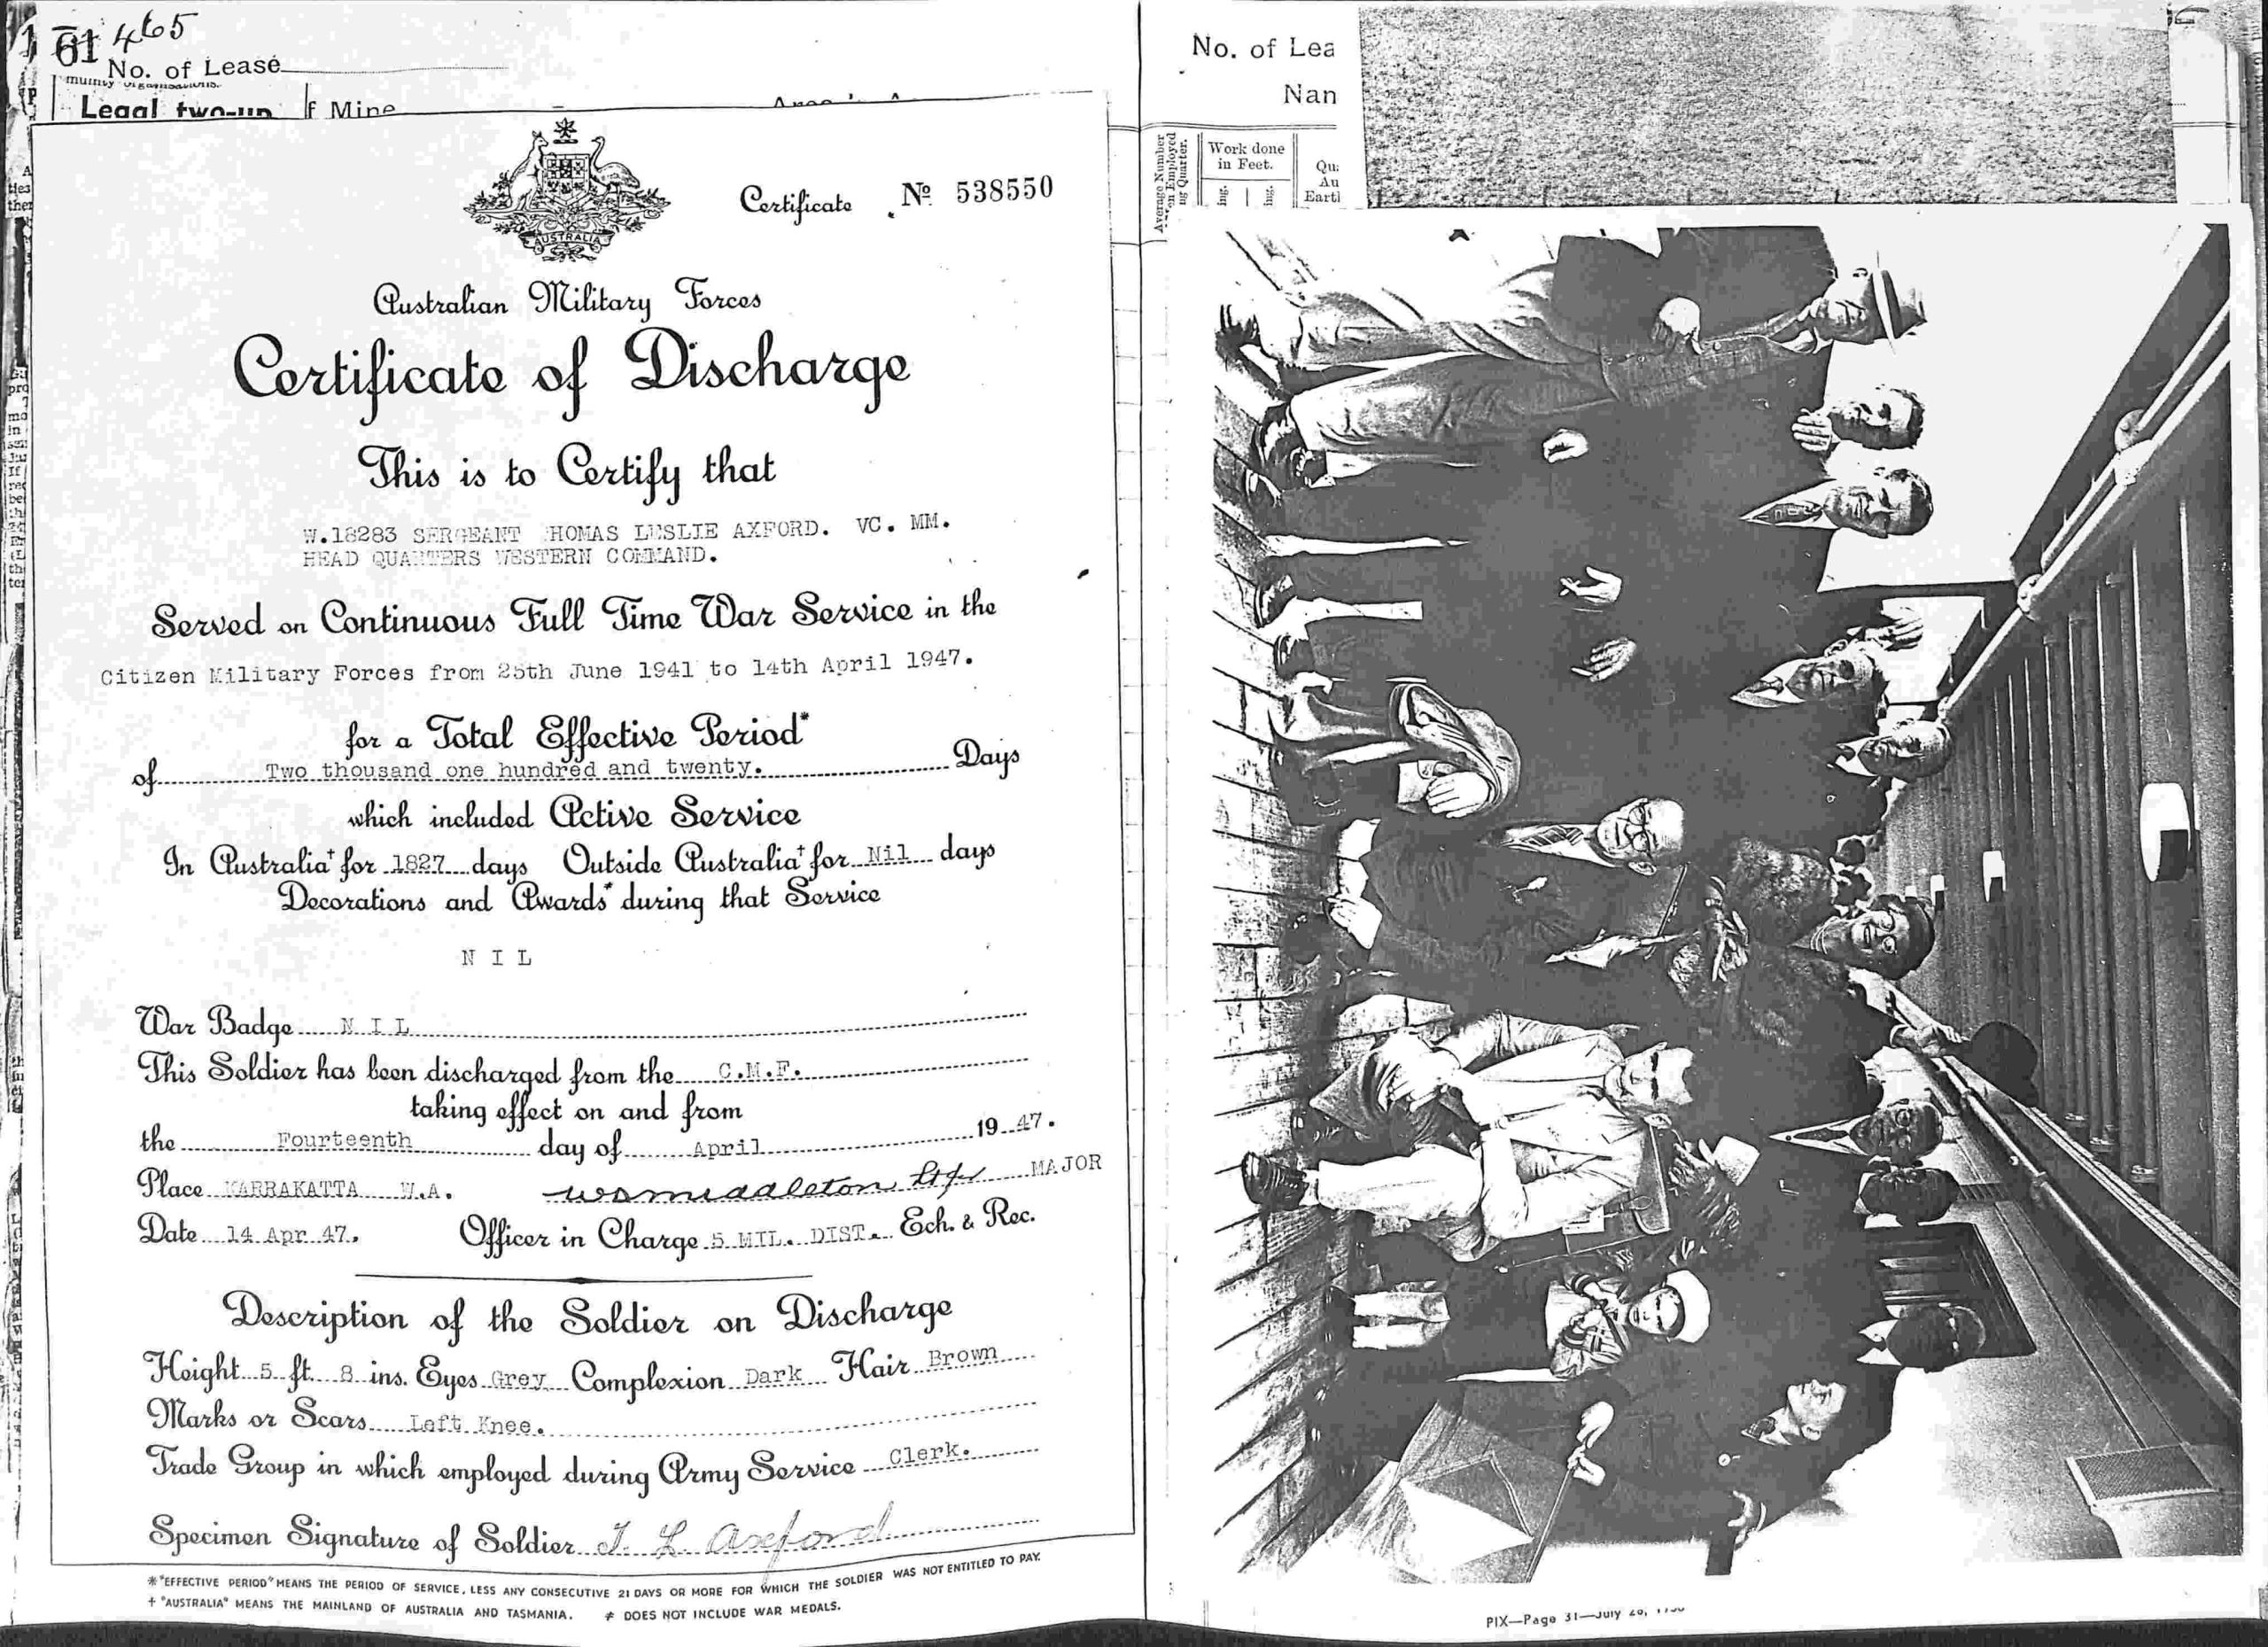 61 465
No. of Lease
Legal two-up
f Mine
Certificate No 538550
AUSTRALIA
Australian Military Forces
Certificate of Discharge
This is to Certify that
W.18283 SERGEANT HOMAS LESLIE AXFORD. VC. MM.
HEAD QUARTERS WESTERN COMMAND.
Served on Continuous Full Time War Service in the
Citizen Military Forces from 25th June 1941 to 14th April 1947.
for a Total Effective Period*
of Two thousand one hundred and twenty. Days
which included Active Service
In Australia† for 1827 days Outside Australia† for Nil days
Decorations and Awards* during that Service
N I L
War Badge N I L
This Soldier has been discharged from the C.M.F.
taking effect on and from
the Fourteenth day of April 19 47.
Place KARRAKATTA W.A. MAJOR
Date 14 Apr 47. Officer in Charge 5 MIL. DIST. Ech. & Rec.
Description of the Soldier on Discharge
Height 5 ft. 8 ins. Eyes Grey Complexion Dark Hair Brown
Marks or Scars Left Knee.
Trade Group in which employed during Army Service Clerk.
Specimen Signature of Soldier T. L. Axford
* "EFFECTIVE PERIOD" MEANS THE PERIOD OF SERVICE, LESS ANY CONSECUTIVE 21 DAYS OR MORE FOR WHICH THE SOLDIER WAS NOT ENTITLED TO PAY.
+ "AUSTRALIA" MEANS THE MAINLAND OF AUSTRALIA AND TASMANIA. ≠ DOES NOT INCLUDE WAR MEDALS.
No. of Lea
Nan
Average Number
en Employed
ng Quarter.
Work done
in Feet.
Qu
Au
Eartl
ing.
ing.
PIX—Page 31—July